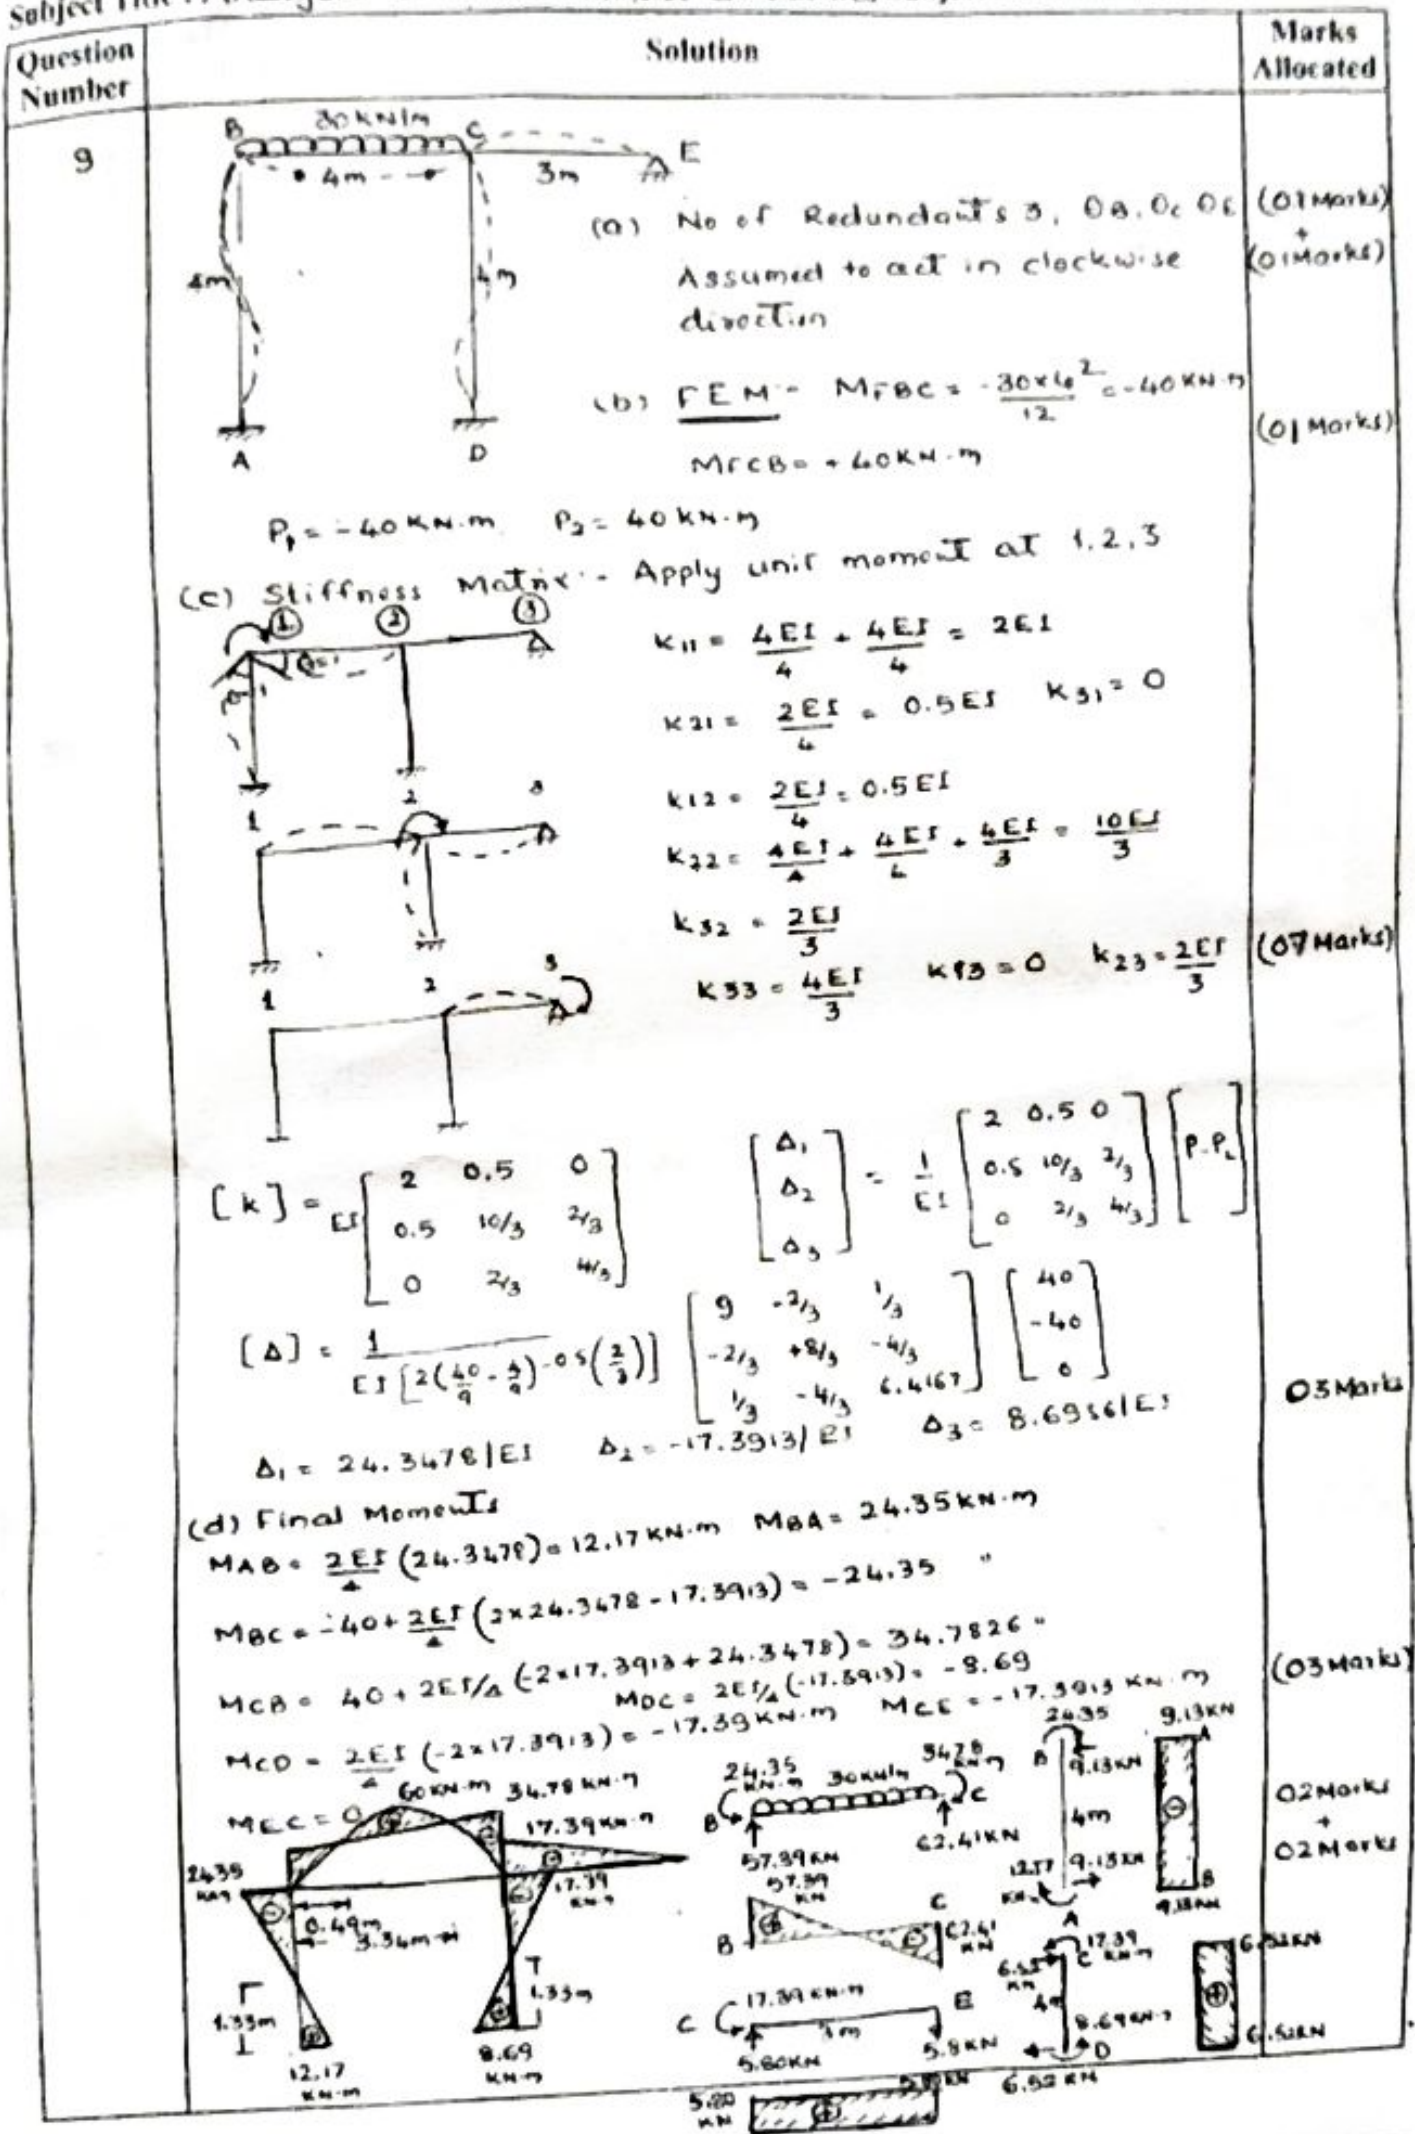 Subject
Question Number
Solution
Marks Allocated
9
30 KN/m
B C E
4m 3m
4m 4m
A D
(a) No of Redundants 3, θB, θC θE
(01 Marks)
+
(01 Marks)
Assumed to act in clockwise
direction
(b) FEM - MFBC = -30×4²/12 = -40 KN-m
(01 Marks)
MFCB = +40KN-m
P₁ = -40 KN.m P₂ = 40 KN.m
(c) Stiffness Matrix - Apply unit moment at 1,2,3
1 2 3
K11 = 4EI/4 + 4EI/4 = 2EI
θ=1
θ=1
K21 = 2EI/4 = 0.5EI K31 = 0
K12 = 2EI/4 = 0.5EI
1 2 3
K22 = 4EI/4 + 4EI/4 + 4EI/3 = 10EI/3
K32 = 2EI/3
1 2 3
K33 = 4EI/3 K13 = 0 K23 = 2EI/3
(07 Marks)
[K] = EI [2 0.5 0
0.5 10/3 2/3
0 2/3 4/3]
[Δ₁ Δ₂ Δ₃] = 1/EI [2 0.5 0
0.5 10/3 2/3
0 2/3 4/3] [P-PL]
[Δ] = 1/EI[2(40/9 - 4/9) -0.5(2/3)] [9 -2/3 1/3
-2/3 +8/3 -4/3
1/3 -4/3 6.4167] [40 -40 0]
03 Marks
Δ₁ = 24.3478/EI Δ₂ = -17.3913/EI Δ₃ = 8.6956/EI
(d) Final Moments
MAB = 2EI/4 (24.3478) = 12.17 KN.m MBA = 24.35 KN.m
MBC = -40 + 2EI/4 (2×24.3478 - 17.3913) = -24.35 "
MCB = 40 + 2EI/4 (-2×17.3913 + 24.3478) = 34.7826 "
MDC = 2EI/4 (-17.3913) = -8.69
(03 Marks)
MCD = 2EI/4 (-2×17.3913) = -17.39 KN.m MCE = -17.3913 KN.m
MEC = 0
60KN-m 34.78 KN-m
17.39KN-m
24.35
17.39 KN-m
0.49m
3.34m
1.33m
1.33m
12.17 KN-m
8.69 KN-m
24.35 KN-m 30KN/m 34.78 KN-m
B C
57.39KN 62.41KN
57.39 KN
B C
62.41 KN
17.39 KN-m
C E
3m
5.80KN 5.8KN
5.80 KN
24.35
B 9.13KN
4m
12.17 9.13KN
A
9.13KN
A
B
9.13KN
02 Marks
+
02 Marks
17.39 KN-m
6.52 KN
C
4m
8.69KN-m
D
6.52 KN
6.52KN
6.52KN